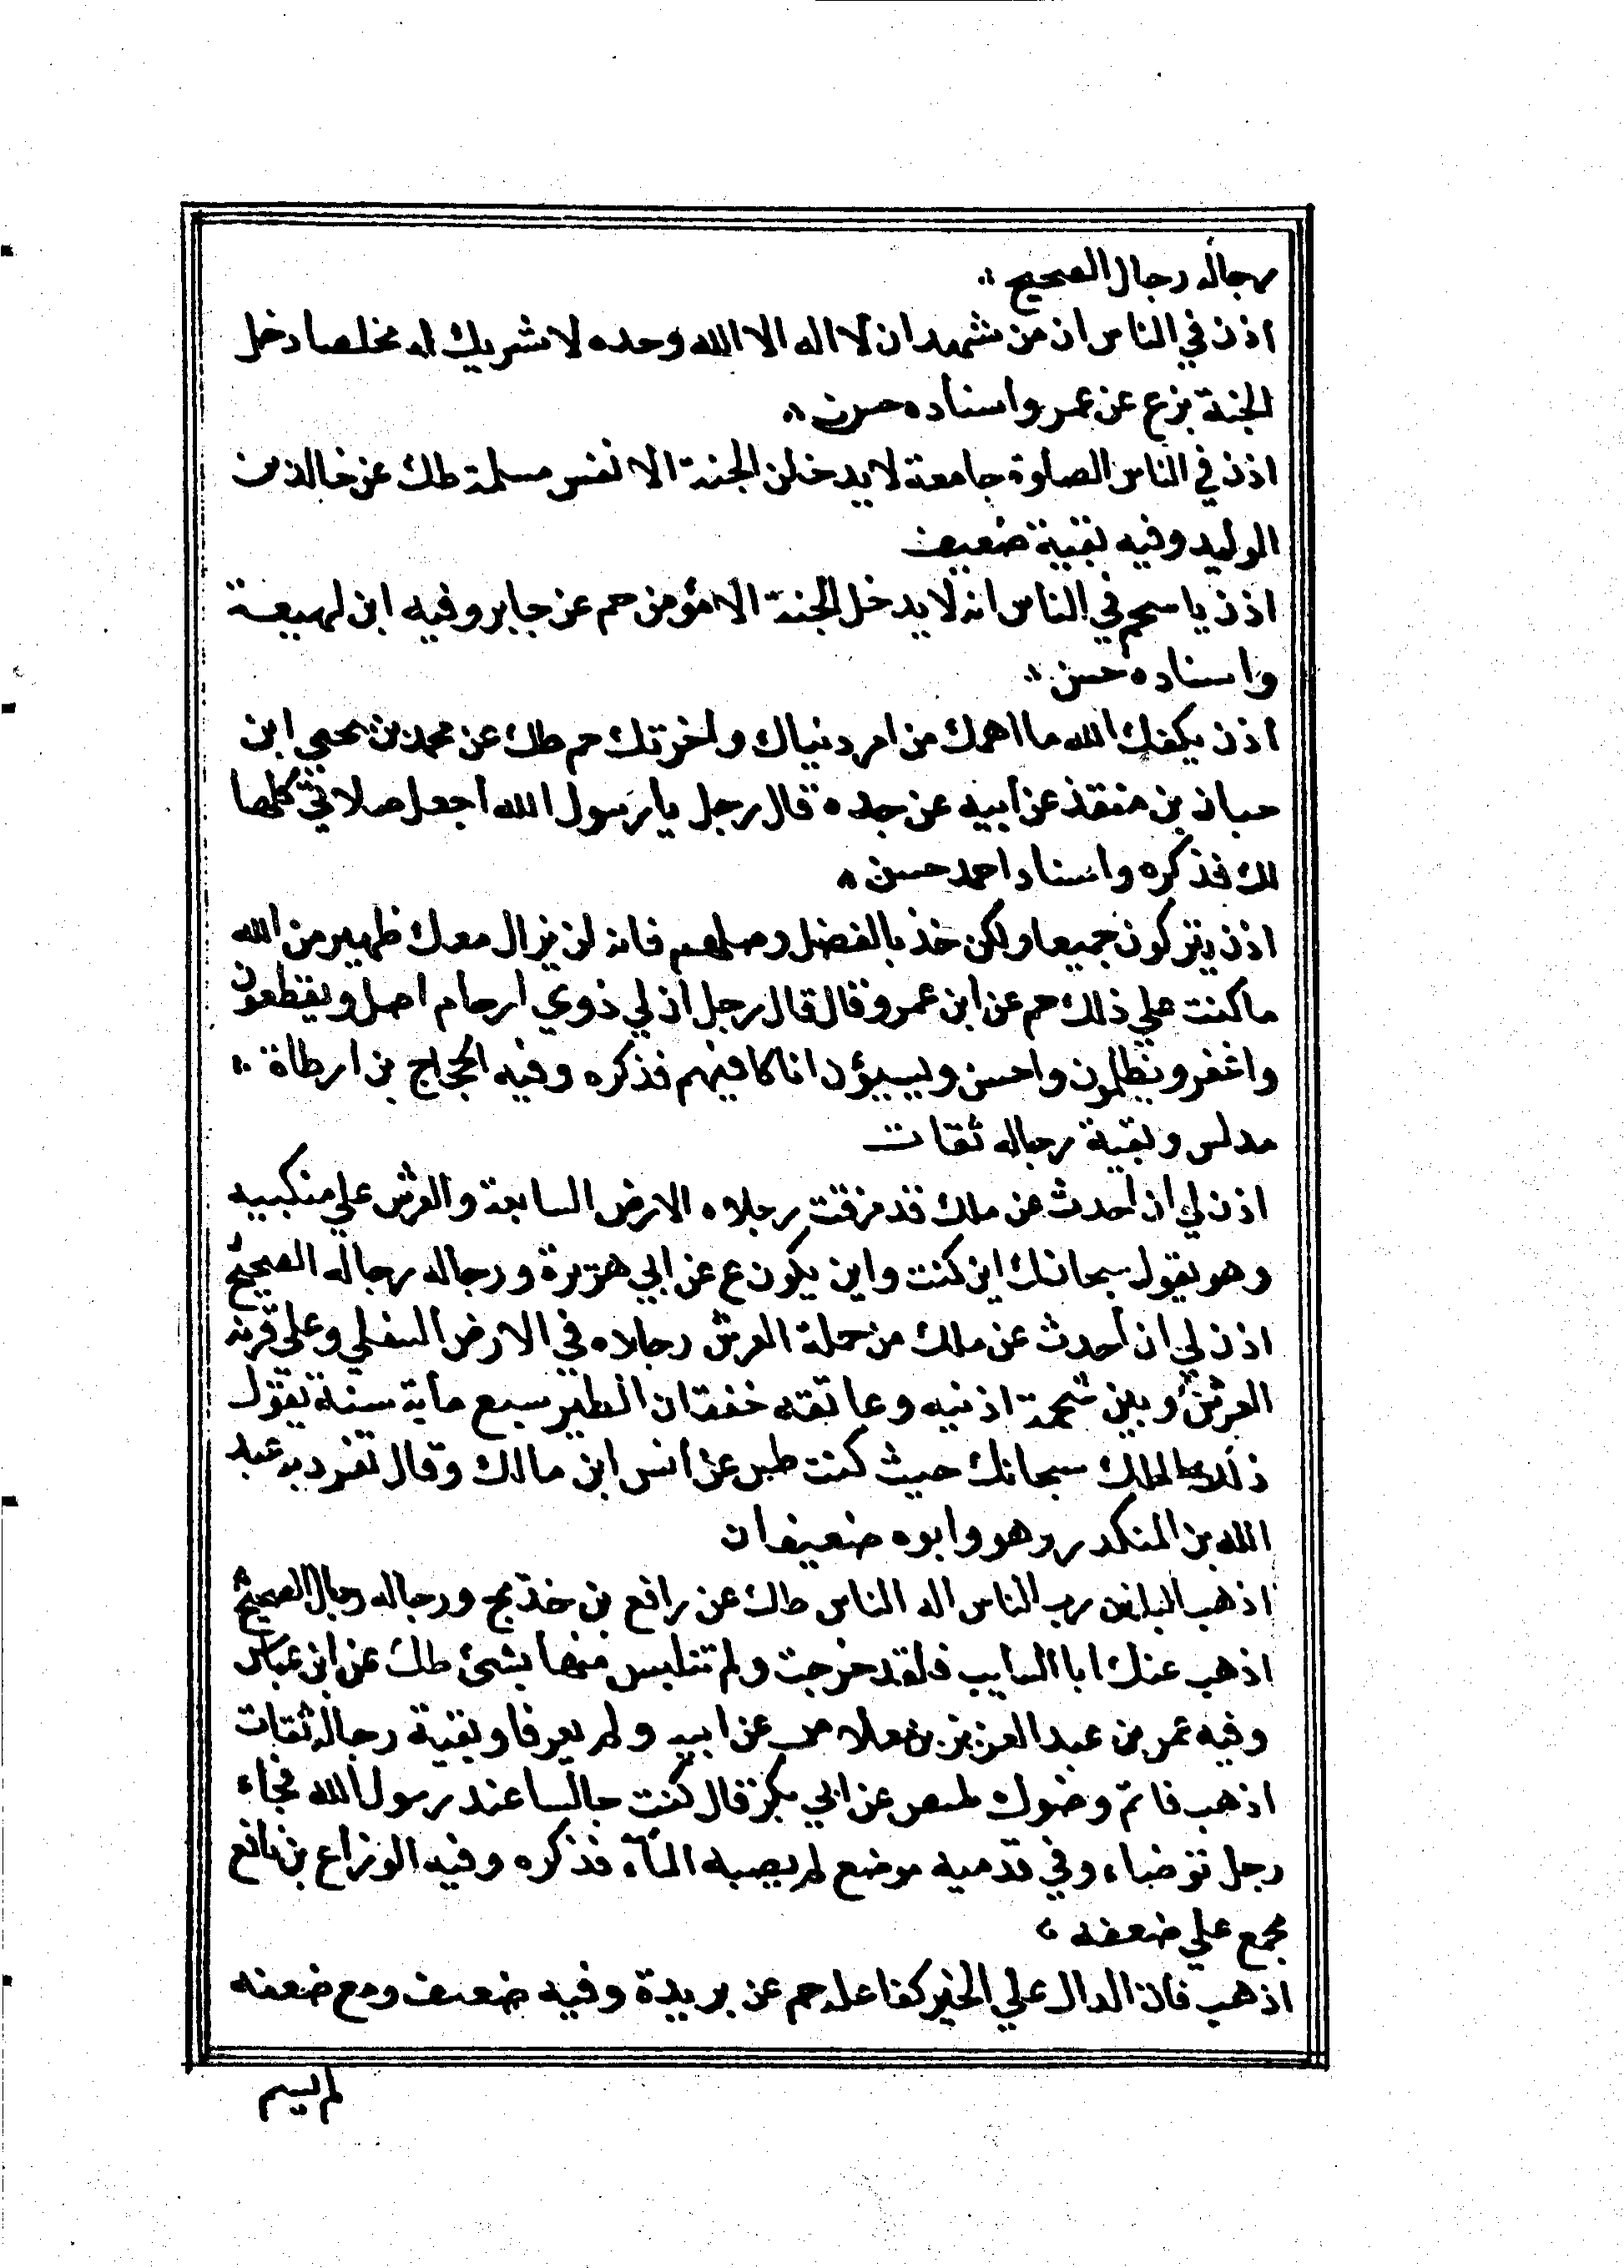 رجاله رجال الصحيح
اذن في الناس ان من شهد ان لا اله الا الله وحده لا شريك له مخلصا دخل
الجنة بز ع عن عمر واسناده حسن
اذن في الناس الصلوة جامعة لا يدخلن الجنة الا نفس مسلمة طك عن خالد بن
الوليد وفيه بقية ضعيف
اذن يا سحيم في الناس انه لا يدخل الجنة الا مؤمن حم عن جابر وفيه ابن لهيعة
واسناده حسن
اذن يكفك الله ما اهمك من امر دنياك واخرتك حم طك عن محمد بن يحيي ابن
حبان بن منقذ عن ابيه عن جده قال رجل يا رسول الله اجعل صلاتي كلها
لك فذكره واسناد احمد حسن
اذن يتركون جميعا ولكن خذ بالفضل وصلهم فانه لن يزال معك ظهير من الله
ما كنت علي ذلك حم عن ابن عمرو قال قال رجل ان لي ذوي ارحام اصل ويقطعون
واغفر ويظلمون واحسن ويسيؤن اناكافيهم فذكره وفيه الحجاج بن ارطاة
مدلس وبقية رجاله ثقات
اذن لي ان احدث عن ملك قد مرقت رجلاه الارض السابعة والعرش علي منكبيه
وهو يقول سبحانك اين كنت واين يكون ع عن ابي هريرة ورجاله رجاله الصحيح
اذن لي ان احدث عن ملك من حملة العرش رجلاه في الارض السفلي وعلي قرنه
العرش وبين شحمة اذنيه وعاتقه خفقان الطير سبع ماية سنة يقول
ذلك الملك سبحانك حيث كنت طس عن انس ابن مالك وقال تفرد به عبد
الله بن المنكدر وهو وابوه ضعيفان
اذهب الباس رب الناس اله الناس طك عن رافع بن خديج ورجاله رجال الصحيح
اذهب عنك ابا السايب فلقد خرجت ولم تتلبس منها بشئ طك عن ابن عباس
وفيه عمر بن عبد العزيز بن مقلاص عن ابيه ولم يعرفا وبقية رجاله ثقات
اذهب فاتم وضوك طسص عن ابي بكر قال كنت جالسا عند رسول الله فجاء
رجل توضاء وفي قدميه موضع لم يصبه الماء فذكره وفيه الوزاع بن نافع
مجمع علي ضعفه
اذهب فان الدال علي الخير كفاعله حم عن بريدة وفيه ضعيف ومع ضعفه
لم يسم